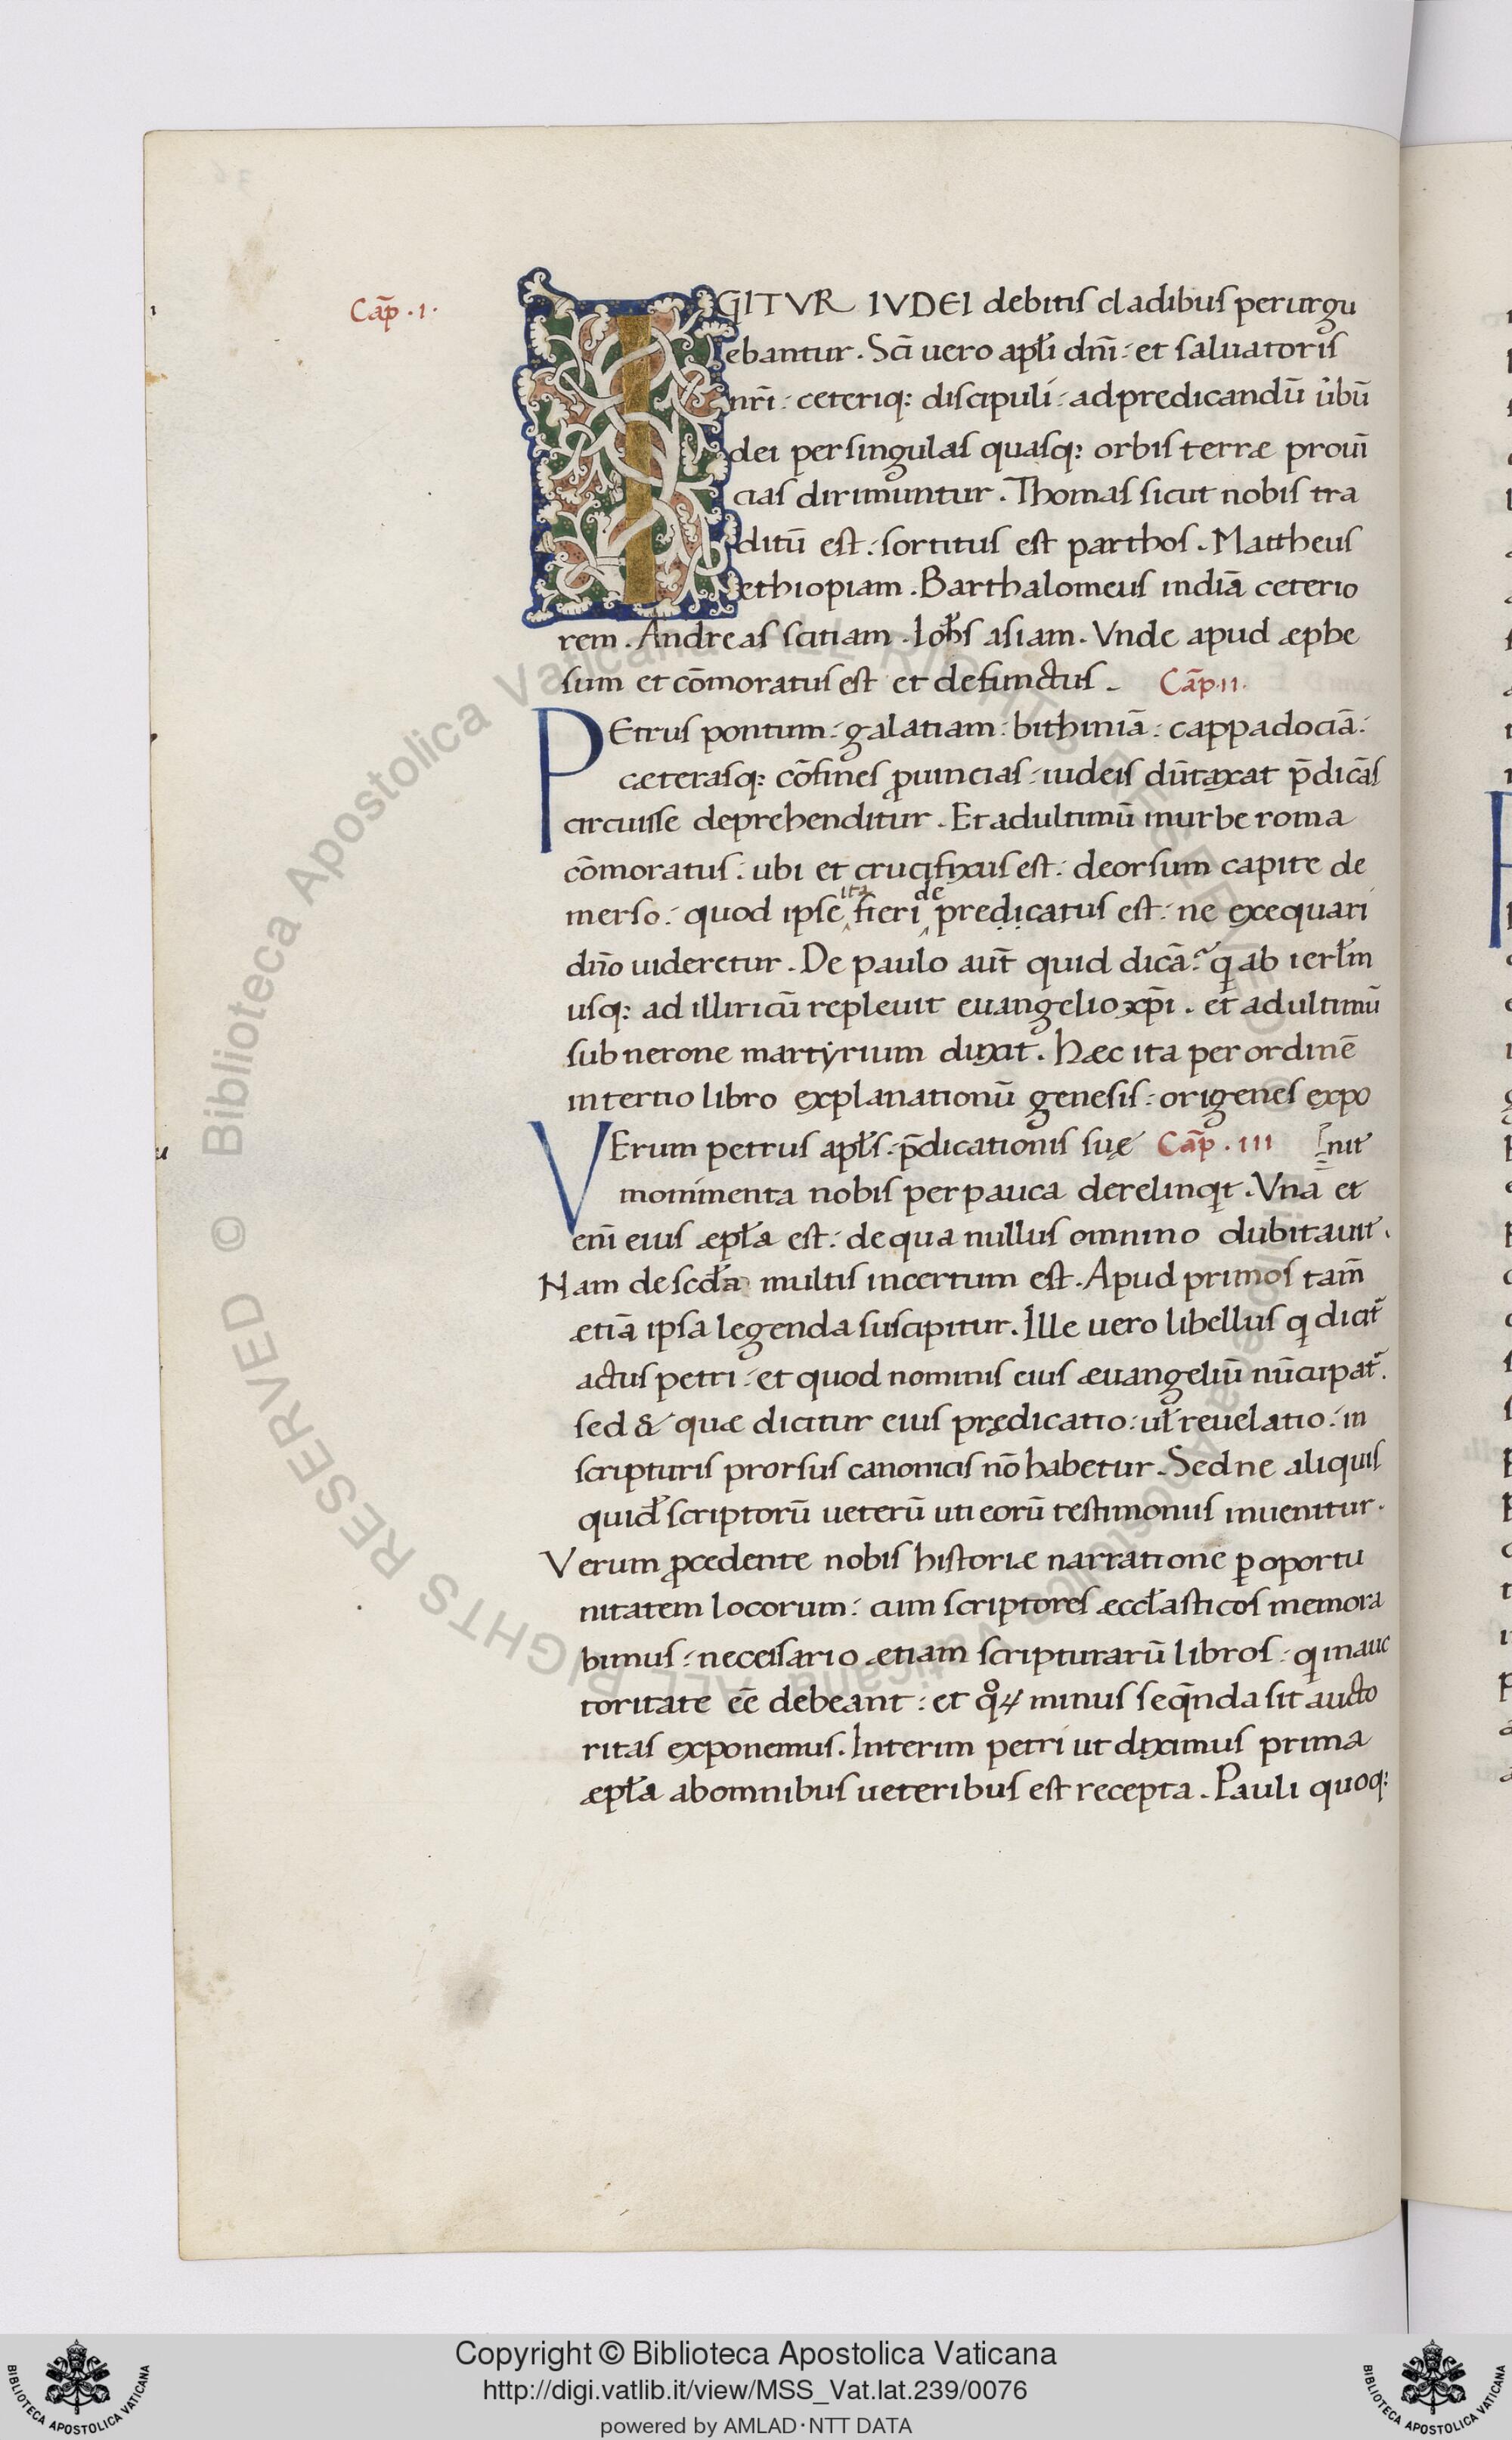 Cap̄ .I.
IGITVR IVDEI debitis cladibus perurgu
ebantur. Sc̄i uero apl̄i dn̄i: et saluatoris
nr̄i: ceteriq: discipuli: ad predicandū ūbū
dei per singulas quasq: orbis terræ prouī
cias dirimuntur. Thomas sicut nobis tra
ditū est: sortitus est parthos. Mattheus
ethiopiam. Barthalomeus indiā ceterio
rem. Andreas scitiam. Ioh̄s asiam. Vnde apud æphe
sum et cōmoratus est et defunctus. Cap̄.II.
PEtrus pontum: galatiam: bithiniā: cappadociā:
cæterasq: cōfines ꝓuincias: iudeis dūtaxat p̄dicās
circuisse deprehenditur. Et ad ultimū in urbe roma
cōmoratus: ubi et crucifixus est: deorsum capite de
merso: quod ipse ita fieri de predicatus est: ne exequari
dn̄o uideretur. De paulo aut̄ quid dicā? q ab ierl̄m
usq: ad illiricū repleuit euangelio xp̄i. et ad ultimū
sub nerone martyrium duxit. Hæc ita per ordinē
in tertio libro explanationū genesis: origenes expo
VErum petrus apl̄s: p̄dicationis suę Cap̄.III nit
monimenta nobis perpauca derelinqt. Vna et
eni eius æpl̄a est: de qua nullus omnino dubitauit.
Nam de scd̄a multis incertum est. Apud primos tam̄
ætiā ipsa legenda suscipitur. Ille uero libellus q dicit᷑
actus petri: et quod nominis eius æuangeliū nūcupat᷑.
sed & quæ dicitur eius prędicatio: ul̄ reuelatio: in
scripturis prorsus canonicis nō habetur. Sed ne aliquis
quid̄ scriptorū ueterū uti eorū testimoniis inuenitur.
Verum ꝓcedente nobis historiæ narratione ꝑ oportu
nitatem locorum: cum scriptores æccl̄asticos memora
bimus: necessario ætiam scripturarū libros: q in auc
toritate eē debeant: et qoꝝ minus seq̄nda sit aucto
ritas exponemus. Interim petri ut diximus prima
æpl̄a ab omnibus ueteribus est recepta. Pauli quoq:
© Biblioteca Apostolica Vaticana ALL RIGHTS RESERVED
Copyright © Biblioteca Apostolica Vaticana
http://digi.vatlib.it/view/MSS_Vat.lat.239/0076
powered by AMLAD·NTT DATA
BIBLIOTECA APOSTOLICA VATICANA
BIBLIOTECA APOSTOLICA VATICANA